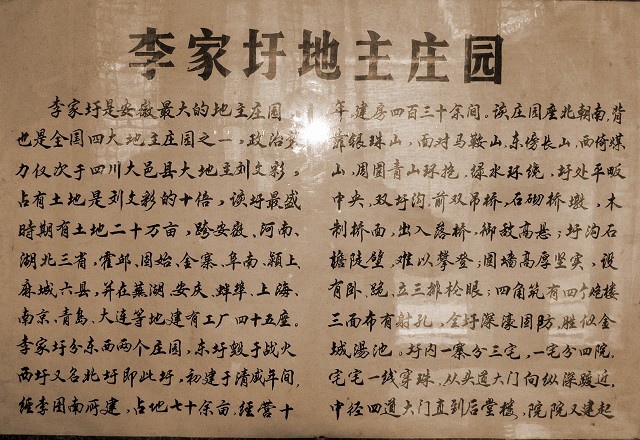 李家圩地主庄园
李家圩是安徽最大的地主庄园
也是全国四大地主庄园之一，政治势
力仅次于四川大邑县大地主刘文彩，
占有土地是刘文彩的十倍，该圩最盛
時期有土地二十万亩，跨安徽、河南、
湖北三省，霍邱、固始、金寨、阜南、颖上、
麻城六县，并在芜湖、安庆、蚌埠、上海、
南京、青島、大连等地建有工厂四十五座。
李家圩分东西两个庄园，东圩毁于战火
西圩又名北圩即此圩，初建于清咸年间，
经李图南所建，占地七十余亩，经营十
年，建房四百三十余间。该庄园座北朝南，背
靠银珠山，面对马鞍山，东傍长山，西倚煤
山，周围青山环抱，绿水环绕，圩处平畈
中央，双圩沟，前双吊桥，石砌桥墩，木
制桥面，出入落桥，御敌高悬；圩沟石
檐陡壁，难以攀登；围墙高厚坚实，设
有卧、跪、立三排枪眼；四角筑有四个炮楼
三面布有射孔，全圩深濠固防，胜似金
城汤池。圩内一寨分三宅，一宅分四院，
宅宅一线穿珠，从头道大门向纵深跋近，
中径四道大门直到后堂楼，院院又建起